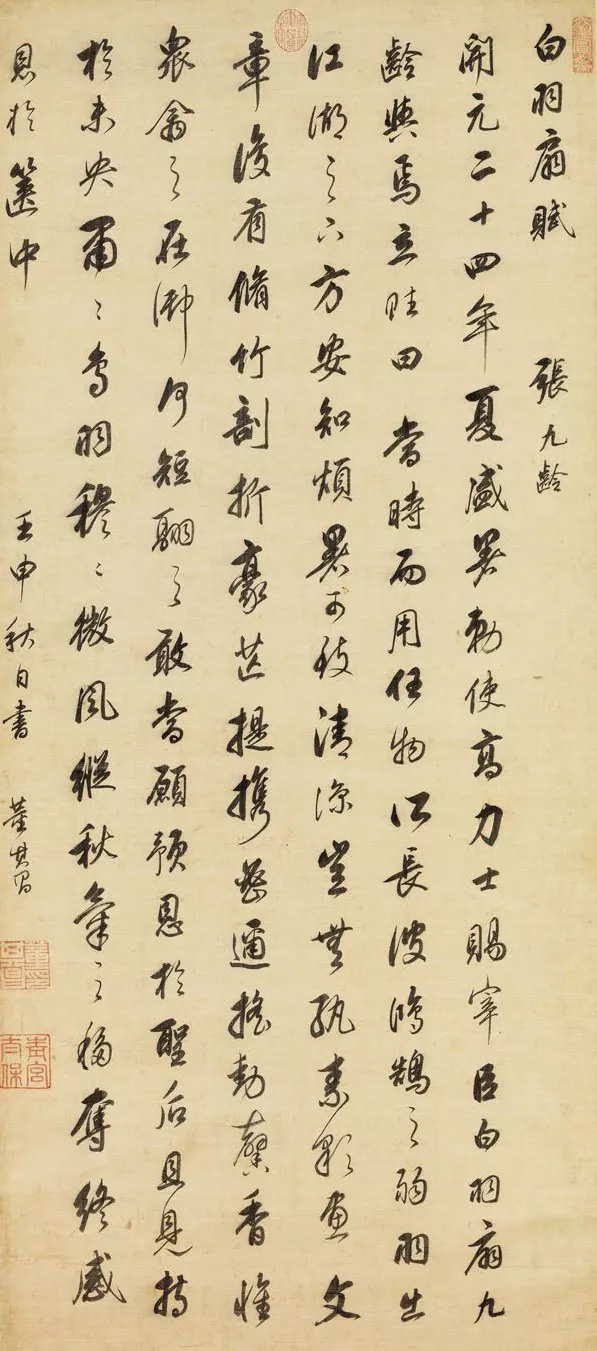 白羽扇賦 張九齡
開元二十四年夏盛暑勅使高力士賜宰臣白羽扇九
齡與焉立賦曰 當時而用任物所長彼鴻鵠之弱羽出
江湖之下方安知煩暑可致清涼豈無紈素彩畫文
章復有脩竹剖折豪芒提攜密邇搖動馨香惟
眾禽之在御何短翮之敢當願預恩於聖后且見持
於未央肅〻羽穆〻微風縱秋氣之移奪終感
恩於篋中 壬申秋日書 董其昌
青宮太保